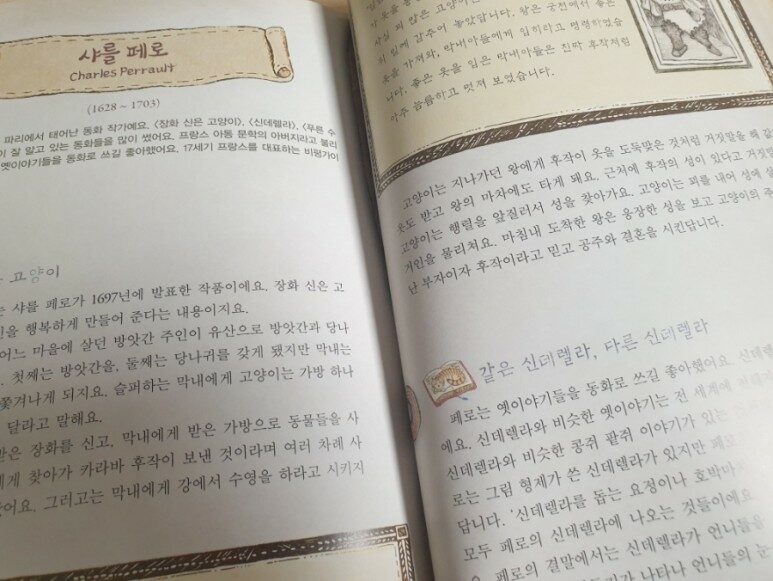 샤를 페로
Charles Perrault
(1628 ~ 1703)
파리에서 태어난 동화 작가예요. 〈장화 신은 고양이〉, 〈신데렐라〉, 〈푸른 수
이 잘 알고 있는 동화들을 많이 썼어요. 프랑스 아동 문학의 아버지라고 불리
옛이야기들을 동화로 쓰길 좋아했어요. 17세기 프랑스를 대표하는 비평가이
고양이
는 샤를 페로가 1697년에 발표한 작품이에요. 장화 신은 고
인을 행복하게 만들어 준다는 내용이지요.
어느 마을에 살던 방앗간 주인이 유산으로 방앗간과 당나
. 첫째는 방앗간을, 둘째는 당나귀를 갖게 됐지만 막내는
쫓겨나게 되지요. 슬퍼하는 막내에게 고양이는 가방 하나
달라고 말해요.
받은 장화를 신고, 막내에게 받은 가방으로 동물들을 사
에게 찾아가 카라바 후작이 보낸 것이라며 여러 차례 사
았어요. 그러고는 막내에게 강에서 수영을 하라고 시키지
사실 퍼 않은 고양이
밑에 감추어 놓았답니다. 왕은 궁전에서 좋은
옷을 가져와, 막내아들에게 입히라고 명령하였습
니다. 좋은 옷을 입은 막내아들은 진짜 후작처럼
아주 늠름하고 멋져 보였습니다.
고양이는 지나가던 왕에게 후작이 옷을 도둑맞은 것처럼 거짓말을 해
옷도 받고 왕의 마차에도 타게 돼요. 근처에 후작의 성이 있다고 거짓말
고양이는 행렬을 앞질러서 성을 찾아가요. 고양이는 꾀를 내어 성에 살
거인을 물리쳐요. 마침내 도착한 왕은 웅장한 성을 보고 고양이의 주
난 부자이자 후작이라고 믿고 공주와 결혼을 시킨답니다.
같은 신데렐라, 다른 신데렐라
페로는 옛이야기들을 동화로 쓰길 좋아했어요. 신데렐
예요. 신데렐라와 비슷한 옛이야기는 전 세계에
신데렐라와 비슷한 콩쥐 팥쥐 이야기가 있는
로는 그림 형제가 쓴 신데렐라가 있지만 페로
답니다. '신데렐라를 돕는 요정이나 호박마
모두 페로의 신데렐라에 나오는 것들이에요
요. 페로의 결말에서는 신데렐라가 언니들을
나타나 언니들의 눈